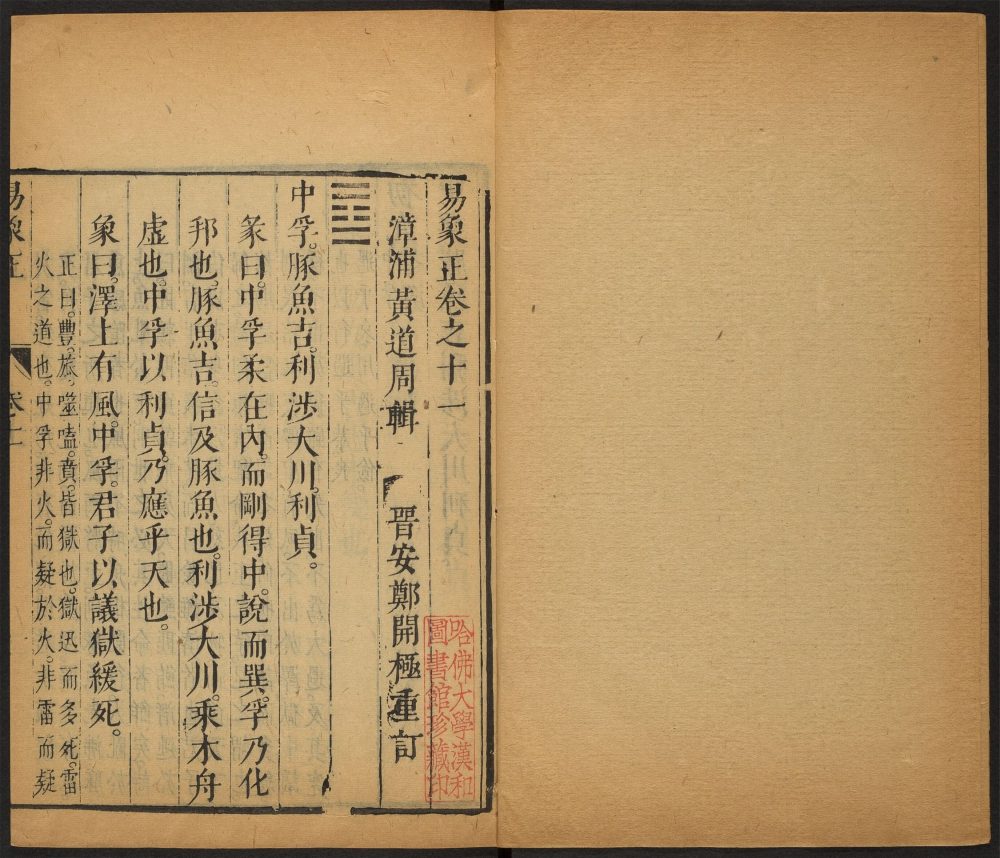 易象正卷之十一
漳浦黃道周輯 晉安鄭開極重訂
中孚。豚魚吉。利涉大川。利貞。
彖曰。中孚柔在內。而剛得中。說而巽。孚乃化
邦也。豚魚吉。信及豚魚也。利涉大川。乘木舟
虛也。中孚以利貞。乃應乎天也。
象曰。澤上有風。中孚。君子以議獄緩死。
正曰。豐。旅。噬嗑。賁。皆獄也。獄迅而多死。雷
火之道也。中孚非火。而疑於火。非雷而疑
易象正 卷十一
哈佛大學漢和
圖書館珍藏印